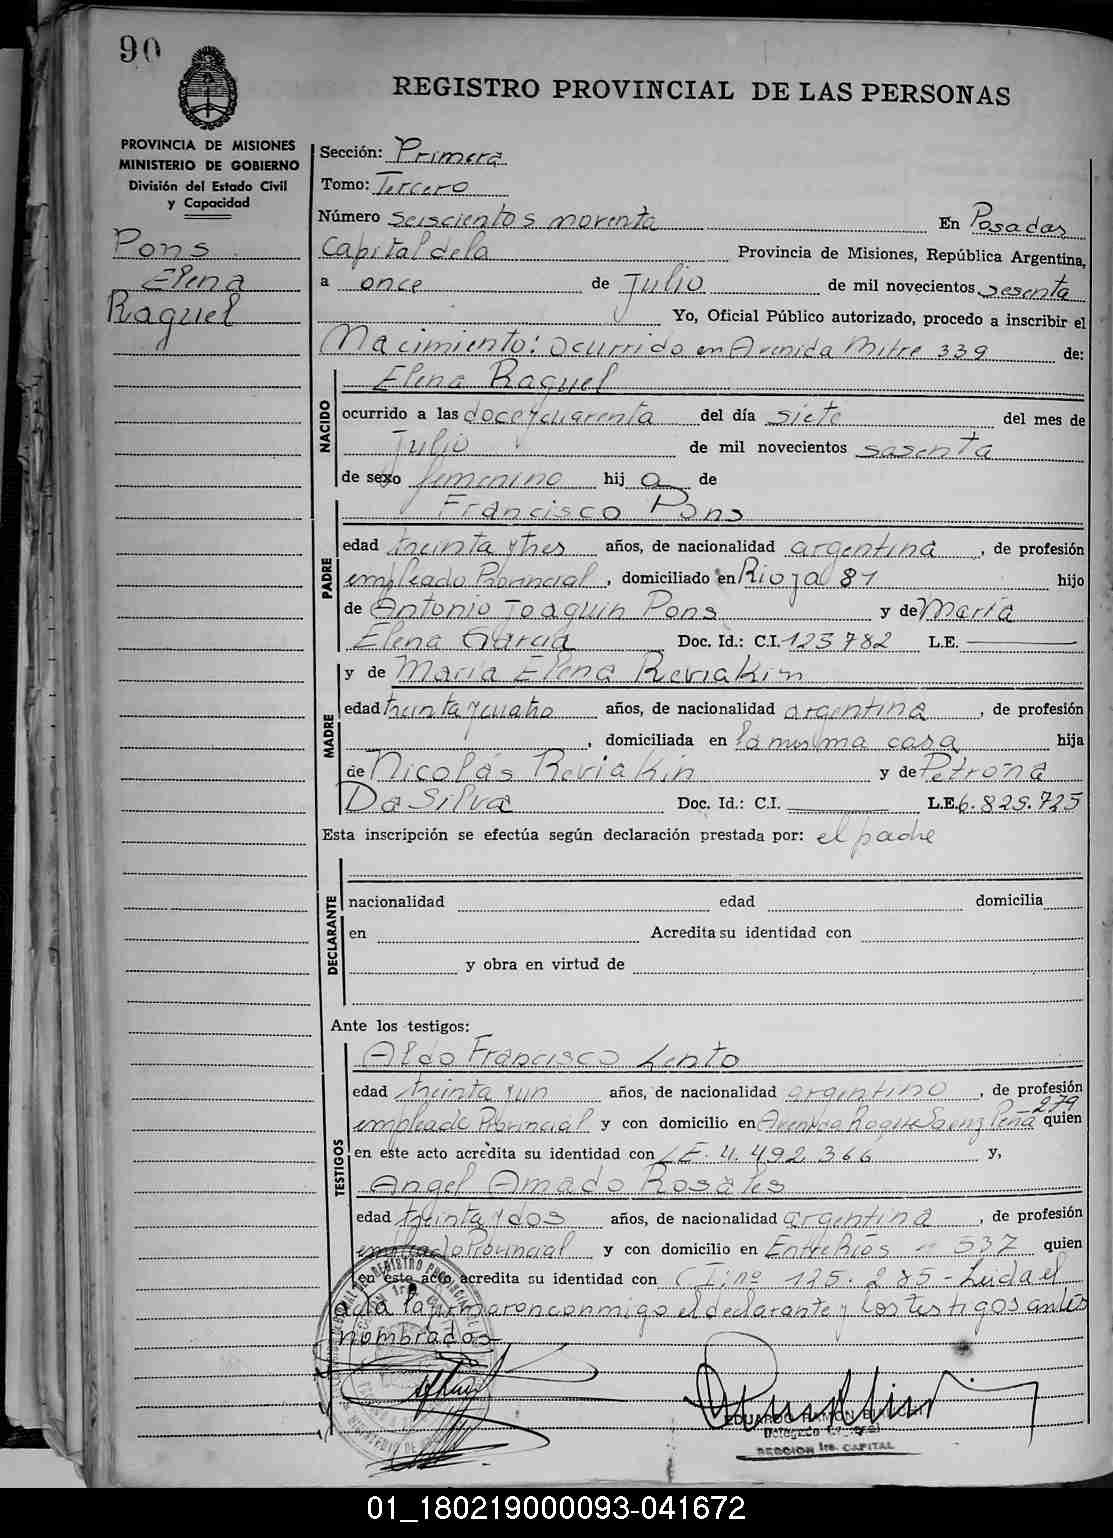 90
REGISTRO PROVINCIAL DE LAS PERSONAS
PROVINCIA DE MISIONES
MINISTERIO DE GOBIERNO
División del Estado Civil
y Capacidad
Pons
Elena
Raquel
Sección: Primera
Tomo: Tercero
Número seiscientos noventa En Posadas
Capital de la Provincia de Misiones, República Argentina,
a once de Julio de mil novecientos sesenta
Yo, Oficial Público autorizado, procedo a inscribir el
Nacimiento: ocurrido en Avenida Mitre 339 de:
NACIDO
Elena Raquel
ocurrido a las doce y cuarenta del día siete del mes de
Julio de mil novecientos sasenta
de sexo femenino hij a de
PADRE
Francisco Pons
edad treinta y tres años, de nacionalidad argentina, de profesión
empleado Provincial, domiciliado en Rioja 81 hijo
de Antonio Joaquin Pons y de Maria
Elena Garcia Doc. Id.: C.I. 123782 L.E.
y de Maria Elena Reviakin
MADRE
edad treinta y cuatro años, de nacionalidad argentina, de profesión
, domiciliada en la misma casa hija
de Nicolás Reviakin y de Petrona
Da Silva Doc. Id.: C.I. L.E. 6.829.725
Esta inscripción se efectúa según declaración prestada por: el padre
DECLARANTE
nacionalidad edad domicilia
en Acredita su identidad con
y obra en virtud de
Ante los testigos:
TESTIGOS
Aldo Francisco Lento
edad treinta y un años, de nacionalidad argentino, de profesión
empleado Provincial y con domicilio en Avenida Roque Saenz Peña 279 quien
en este acto acredita su identidad con LE. 4.492.366 y,
Angel Amado Rosales
edad treinta y dos años, de nacionalidad argentina, de profesión
empleado Provincial y con domicilio en Entre Rios nº 537 quien
en este acto acredita su identidad con C I; nº 125.285 - Leida el
acta la firmaron conmigo el declarante y los testigos antes
nombrados
EDUARDO RAMON
SECCION 1ra. CAPITAL
01_180219000093-041672